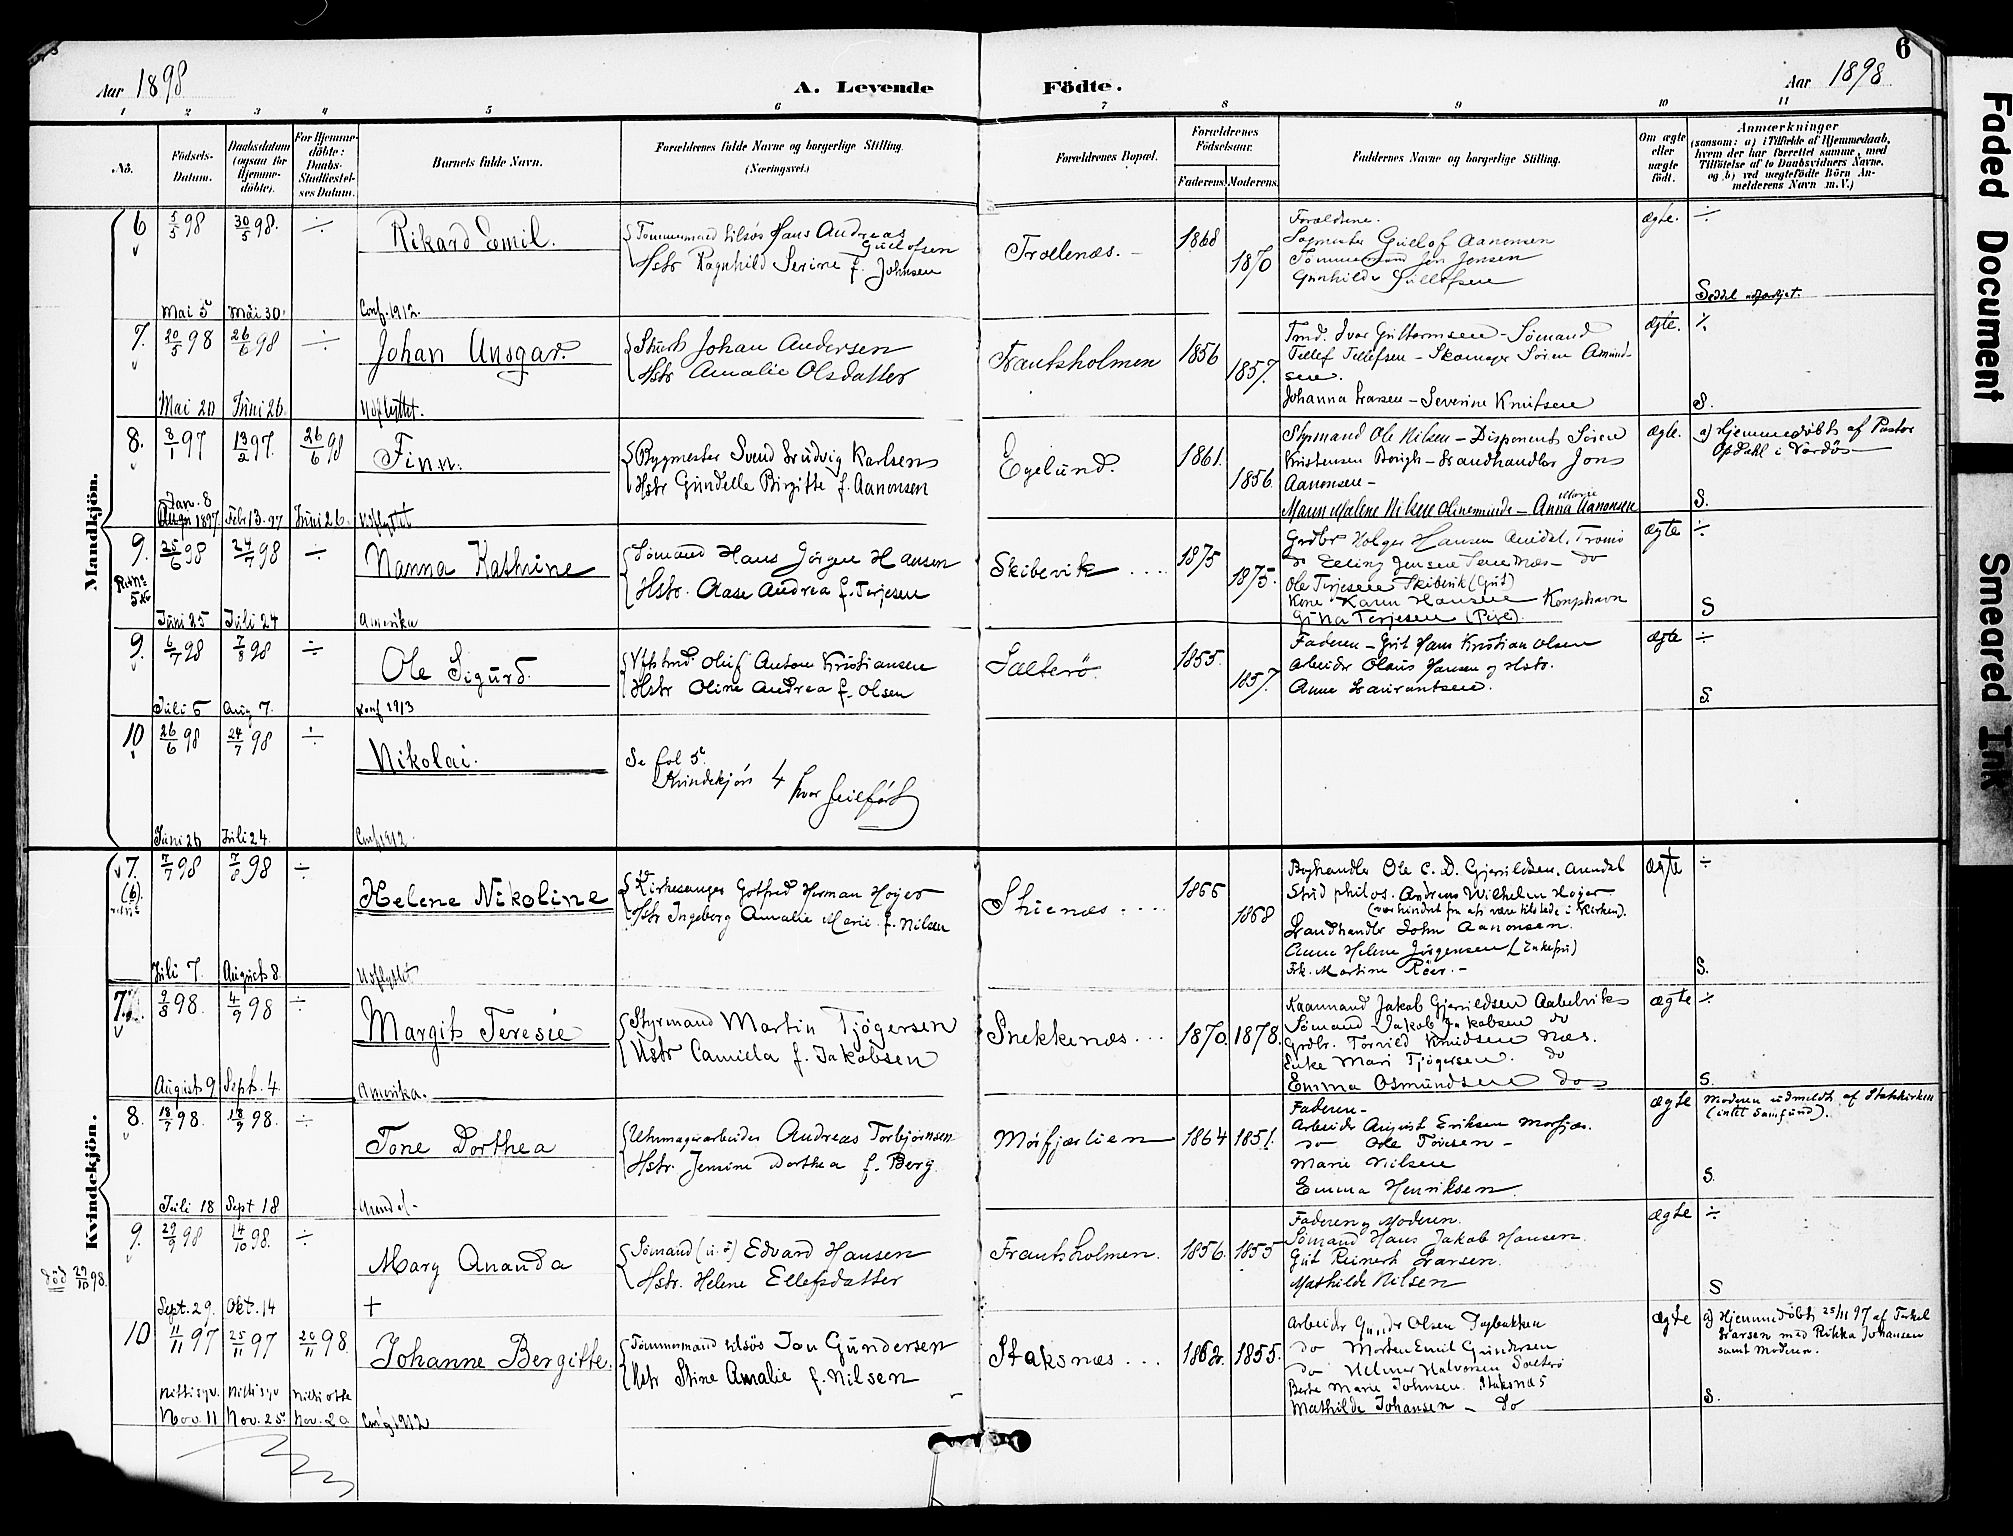 6
Aar 1898
A. Levende Födte.
Aar 1898
1 2 3 4 5 6 7 8 9 10 11
No.
Födsels-Datum.
Daabsdatum (ogsaa for Hjemme-döbte).
For Hjemme-döbte: Daabs-Stadfæstel-ses Datum.
Barnets fulde Navn.
Forældrenes fulde Navne og borgerlige Stilling.
(Næringsvei.)
Forældrenes Bopæl.
Forældrenes Födselsaar.
Faderens. Moderens.
Faddernes Navne og borgerlige Stilling.
Om ægte eller uægte födt.
Anmærkninger
(saasom: a) i Tilfælde af Hjemmedaab,
hvem der har forrettet samme, med
Tilföielse af to Daabsvidners Navne,
og b) ved uægtefödte Börn An-
melderens Navn m.V.)
Mandkjön.
6 5/5 98 30/5 98. ÷ Rikard Emil.
Tømmermand tilsøs Hans Andreas Gullofsen
Hstr Ragnhild Serine f. Johnsen
Trollenæs. 1868 1870
Forældrene.
Gullof Aanonsen
Tømmermand Jen Jensen
Gunhilde Gullofsen
ægte. ÷
Seddel udfærdiget.
Mai 5 Mai 30. Conf. 1912.
7. 20/5 98 26/6 98 ÷ Johan Ansgar.
Johan Andersen
Hstr Amalie Olsdatter
Frantsholmen 1856 1857.
Tmd. Ivar Guttormsen - Sømand
Tellef Tellefsen - Skomager Søren Amund-
sen.
Johanna Larsen - Severine Knutsen
ægte. ÷
S.
Mai 20 Juni 26. Udflyttet.
8. 8/1 97 13/2 97. 26/6 98 Finn.
Bygmester Svend Ludvig Karlsen
Hstr Gundelle Birgitte f. Aanonsen
Egelund. 1861. 1856.
Styrmand Ole Nilsen - Disponent Søren
Kristensen - Landhandler Jens
Aanonsen -
Maren Malene Nilsen - Anna Marie Aanonsen
ægte. a) Hjemmedøbt af Pastor
Opdahl i Vardø -
S.
Jan. 8 1897 Febr 13. 97 Juni 26. Udflyttet
9. 25/6 98 24/7 98 ÷ Nanna Kathrine
Sømand Hans Jörgen Hansen
Hstr. Aase Andrea f. Terjesen
Skibevik ... 1875 1875.
Grdbr Holger Hansen Tromø
do Elling Jensen do
Ole Terjesen Skibevik (Gut)
Kone Karen Hansen
Gina Terjesen (Pige).
ægte ÷
S
Juni 25 Juli 24 Amerika
9. 6/7 98 7/8 98 ÷ Ole Sigurd.
Oluf Anton Kristiansen
Hstr Oline Andrea f. Olsen
Salterö. 1855. 1857.
Faderen - Gut Hans Kristian Olsen
Arbeider Olaus Hansen og Hstr.
Anne Laurantsen.
ægte ÷
S.
Juli 6 Aug 7. Konf 1913
10 26/6 98 24/7 98 ÷ Nikolai.
Se fol 5.
Kvindekjön 4
hvor feilført
Juni 26 Juli 24. Conf 1912.
Kvindekjön.
7. (6) 7/7 98 98 ÷ Helene Nikoline
Kirkesanger Gotfred Herman Høyer
Hstr Ingeborg Amalie Marie f. Nilsen
Stienæs .... 1868
Boghandler Ole C. D. Gjerildsen, Arendal
Stud philos. Andreas Wilhelm Høyer
(var hindret fra at være tilstede i Kirken).
Landhandler John Aanonsen.
Anne Helene Jørgensen (Enkefru)
Frk. Martine Röer. -
ægte ÷
S.
Juli 7. August 8. Udflyttet
7. 9/8 98. 4/9 98 ÷ Margit Teresie
Styrmand Martin Tjögersen
Hstr Camilla f. Jakobsen
Snekkenæs... 1870. 1878.
Kaanmand Jakob Gjerildsen
Sømand Jakob Jakobsen do
Grdbr. Torvild Knudsen Næs.
Enke Mari Tjögersen. do
Emma Osmundsen do
ægte ÷
S.
August 9 Sept. 4. Amerika.
8. 18/7 98. 18/9 98. ÷ Tone Dorthea
Uhrmagerarbeider Andreas Torbjörnsen
Hstr. Jemine Dorthea f. Berg
Mörfjærlien 1864 1851.
Faderen -
Arbeider August Eriksen
do Ole -
Marie Nilsen
Emma Henriksen.
ægte Moderen udmeldt af Statskirken
(intet Samfund).
S.
Juli 18 Sept 18
9. 29/9 98 14/10 98. ÷ Mary Ananda
Sømand Edvard Hansen
Hstr. Helene Ellefsdatter
Frantsholmen. 1856. 1855
Faderen og Moderen.
Sømand Hans Jakob Hansen.
Gut Reinert Larsen.
Mathilde Nilsen
ægte ÷
S
död 29/10 98.
Sept. 29. Okt. 14 +
10 11/11 97 25/11 97 20/11 98. Johanne Bergitte.
Tømmermand tilsös Jon Gundersen
Hstr Stine Amalie f. Nilsen
Staksnæs ... 1862. 1855.
Arbeider Gunder Olsen
do Morten Emil Gundersen
do Helmer Halvorsen Salterö
Berte Marie Johnsen. Staksnæs
Mathilde Johansen - do
ægte a) Hjemmedöbt 25/11 97 af Terkel
Larsen med Rikka Johansen
samt Moderen.
S.
Nittisyv Nov. 11 Nittisyv Nov. 25 Nittiotte Nov. 20 1912
Faded Document
Smeared Ink